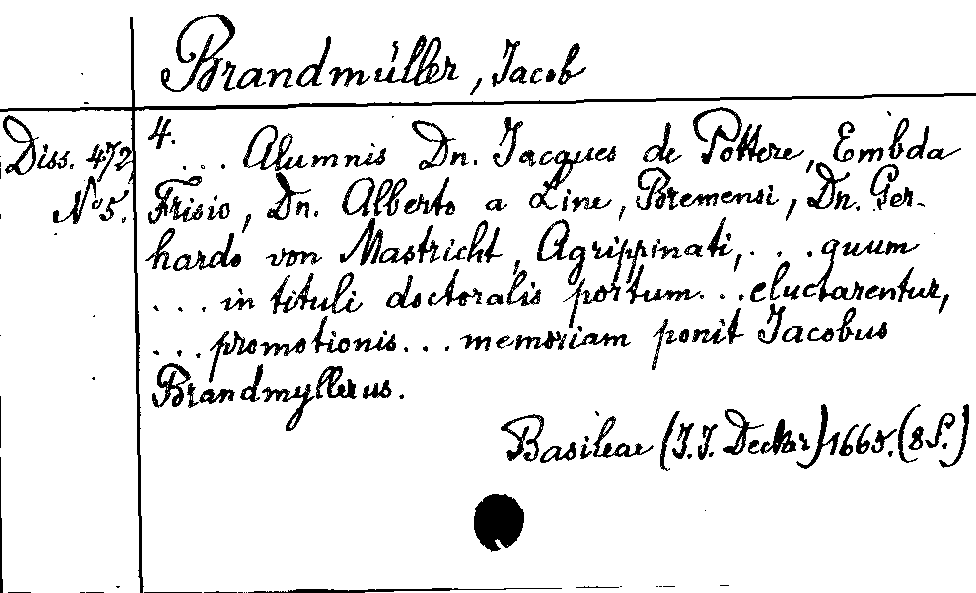 Brandmüller, Jacob
Diss. 472,
No 5.
4.
... Alumnis Dn. Jacques de Pottere, Embda
Frisio, Dn. Alberto a Line, Bremensi, Dn. Ger-
hardo von Mastricht, Agrippinati, ... quum
... in tituli doctoralis portum ... eluctarentur,
... promotionis ... memoriam ponit Jacobus
Brandmyllerus.
Basileae (J. J. Decker) 1665. (8 S.)